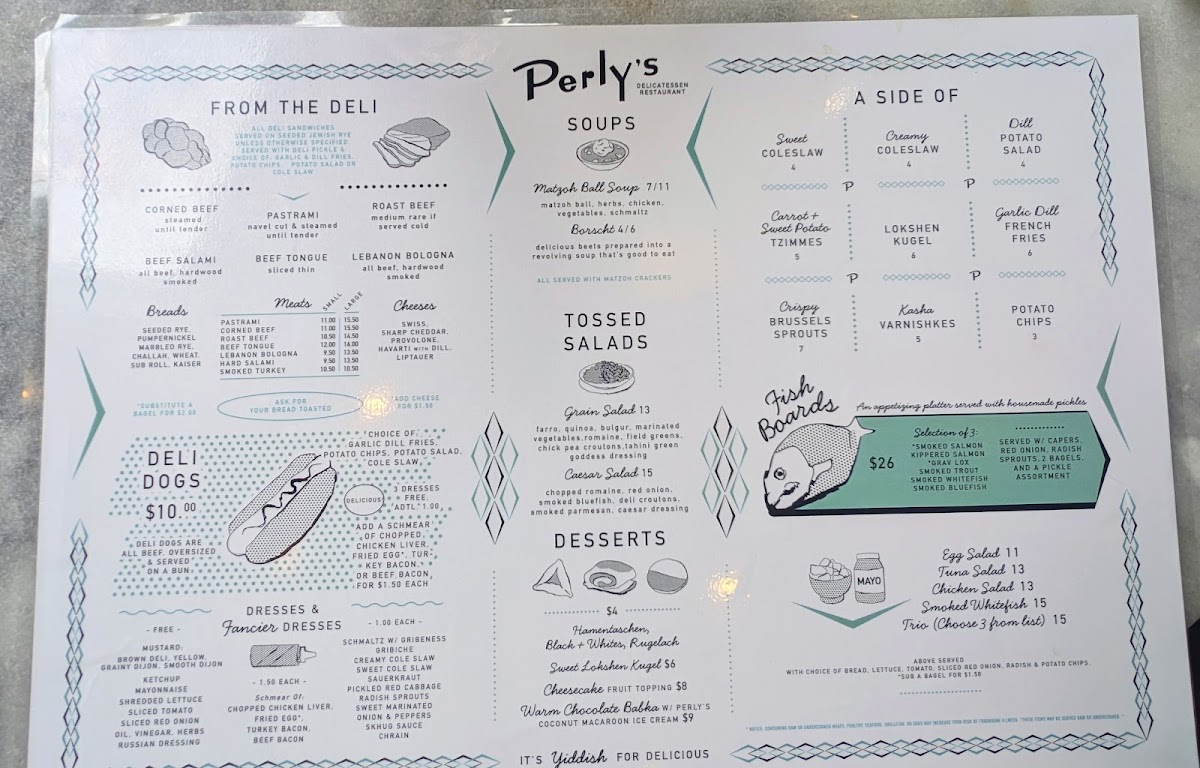 Perly's
DELICATESSEN
RESTAURANT
FROM THE DELI
ALL DELI SANDWICHES
SERVED ON SEEDED JEWISH RYE
UNLESS OTHERWISE SPECIFIED.
SERVED WITH DELI PICKLE &
CHOICE OF: GARLIC & DILL FRIES,
POTATO CHIPS, POTATO SALAD OR
COLE SLAW
CORNED BEEF
steamed
until tender
PASTRAMI
navel cut & steamed
until tender
ROAST BEEF
medium rare if
served cold
BEEF SALAMI
all beef, hardwood
smoked
BEEF TONGUE
sliced thin
LEBANON BOLOGNA
all beef, hardwood
smoked
Breads
SEEDED RYE,
PUMPERNICKEL
MARBLED RYE,
CHALLAH, WHEAT,
SUB ROLL, KAISER
Meats SMALL LARGE
PASTRAMI 11.00 15.50
CORNED BEEF 11.00 15.50
ROAST BEEF 10.50 14.50
BEEF TONGUE 12.00 16.00
LEBANON BOLOGNA 9.50 13.50
HARD SALAMI 9.50 13.50
SMOKED TURKEY 10.50 10.50
Cheeses
SWISS,
SHARP CHEDDAR,
PROVOLONE,
HAVARTI WITH DILL,
LIPTAUER
*SUBSTITUTE A
BAGEL FOR $2.00
ASK FOR
YOUR BREAD TOASTED
*ADD CHEESE
FOR $1.50
DELI
DOGS
$10.00
DELI DOGS ARE
ALL BEEF, OVERSIZED
& SERVED
ON A BUN.
CHOICE OF:
GARLIC DILL FRIES,
POTATO CHIPS, POTATO SALAD,
COLE SLAW
DELICIOUS
3 DRESSES
FREE,
ADTL. 1.00
ADD A SCHMEAR
OF CHOPPED,
CHICKEN LIVER,
FRIED EGG*, TUR-
KEY BACON,
OR BEEF BACON,
FOR $1.50 EACH
DRESSES &
Fancier DRESSES
- FREE -
MUSTARD:
BROWN DELI, YELLOW,
GRAINY DIJON, SMOOTH DIJON
KETCHUP
MAYONNAISE
SHREDDED LETTUCE
SLICED TOMATO
SLICED RED ONION
OIL, VINEGAR, HERBS
RUSSIAN DRESSING
- 1.50 EACH -
Schmear Of:
CHOPPED CHICKEN LIVER,
FRIED EGG*,
TURKEY BACON,
BEEF BACON
- 1.00 EACH -
SCHMALTZ W/ GRIBENESS
GRIBICHE
CREAMY COLE SLAW
SWEET COLE SLAW
SAUERKRAUT
PICKLED RED CABBAGE
RADISH SPROUTS
SWEET MARINATED
ONION & PEPPERS
SKHUG SAUCE
CHRAIN
SOUPS
Matzoh Ball Soup 7/11
matzoh ball, herbs, chicken,
vegetables, schmaltz
Borscht 4/6
delicious beets prepared into a
revolving soup that's good to eat
ALL SERVED WITH MATZOH CRACKERS
TOSSED
SALADS
Grain Salad 13
farro, quinoa, bulgur, marinated
vegetables, romaine, field greens,
chick pea croutons, tahini green
goddess dressing
Caesar Salad 15
chopped romaine, red onion,
smoked bluefish, deli croutons,
smoked parmesan, caesar dressing
DESSERTS
$4
Hamentaschen,
Black + Whites, Rugelach
Sweet Lokshen Kugel $6
Cheesecake FRUIT TOPPING $8
Warm Chocolate Babka W/ PERLY'S
COCONUT MACAROON ICE CREAM $9
IT'S Yiddish FOR DELICIOUS
A SIDE OF
Sweet
COLESLAW
4
Creamy
COLESLAW
4
Dill
POTATO
SALAD
4
P P
Carrot +
Sweet Potato
TZIMMES
5
LOKSHEN
KUGEL
6
Garlic Dill
FRENCH
FRIES
6
P P
Crispy
BRUSSELS
SPROUTS
7
Kasha
VARNISHKES
5
POTATO
CHIPS
3
Fish
Boards
An appetizing platter served with housemade pickles
$26
Selection of 3:
*SMOKED SALMON
KIPPERED SALMON
*GRAV LOX
SMOKED TROUT
SMOKED WHITEFISH
SMOKED BLUEFISH
SERVED W/ CAPERS,
RED ONION, RADISH
SPROUTS, 2 BAGELS,
AND A PICKLE
ASSORTMENT
MAYO
Egg Salad 11
Tuna Salad 13
Chicken Salad 13
Smoked Whitefish 15
Trio (Choose 3 from list) 15
ABOVE SERVED
WITH CHOICE OF BREAD, LETTUCE, TOMATO, SLICED RED ONION, RADISH & POTATO CHIPS.
*SUB A BAGEL FOR $1.50
* NOTICE: CONSUMING RAW OR UNDERCOOKED MEATS, POULTRY, SEAFOOD, SHELLFISH, OR EGGS MAY INCREASE YOUR RISK OF FOODBORNE ILLNESS. *THESE ITEMS MAY BE SERVED RAW OR UNDERCOOKED.